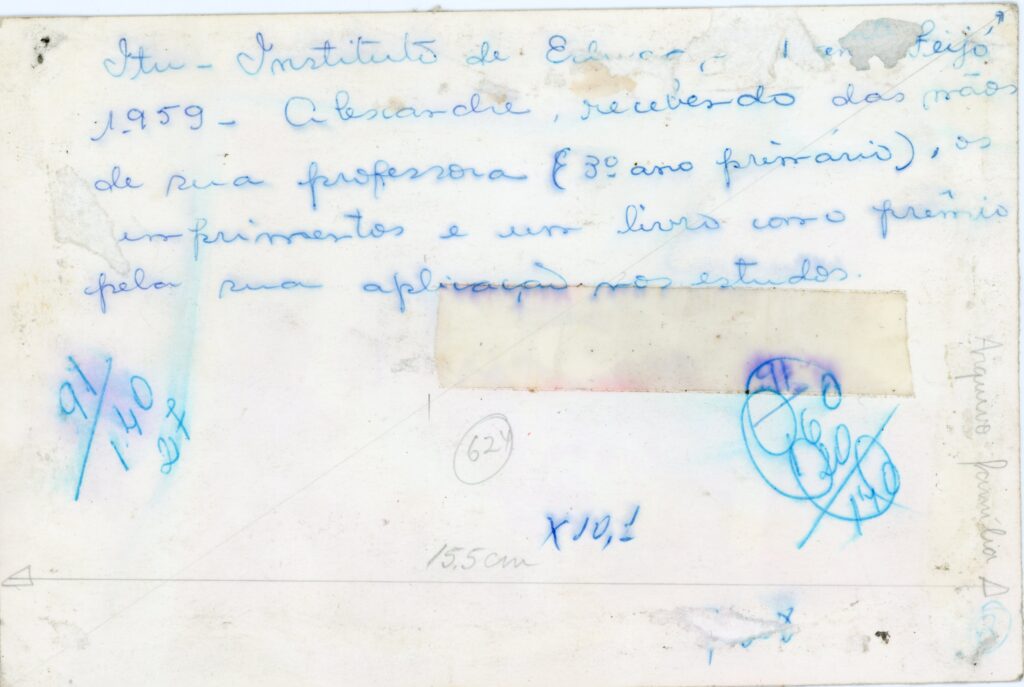 Itu - Instituto de Feijó
1959 - Alexandre, recebendo das mãos
de sua professora (3º ano primário), os
cumprimentos e um livro como prêmio
pela sua aplicação nos estudos.
91/140
27
91
60
20/140
624
X 10,1
15,5 cm
Arquivo família